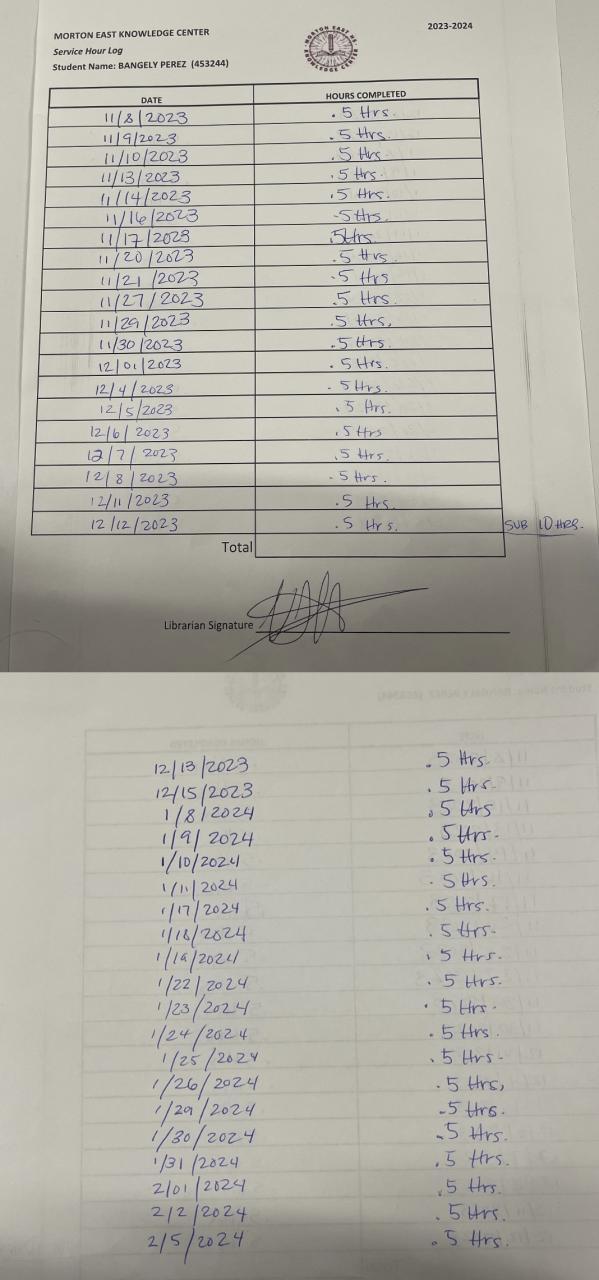 MORTON EAST KNOWLEDGE CENTER
2023-2024
Service Hour Log
Student Name: BANGELY PEREZ (453244)
DATE HOURS COMPLETED
11/8/2023 .5 Hrs.
11/9/2023 .5 Hrs.
11/10/2023 .5 Hrs
11/13/2023 .5 Hrs.
11/14/2023 .5 Hrs.
11/16/2023 .5 Hrs.
11/17/2023 .5 Hrs.
11/20/2023 .5 Hrs.
11/21/2023 .5 Hrs
11/27/2023 .5 Hrs.
11/29/2023 .5 Hrs,
11/30/2023 .5 Hrs
12/01/2023 .5 Hrs.
12/4/2023 .5 Hrs.
12/5/2023 .5 Hrs.
12/6/2023 .5 Hrs
12/7/2023 .5 Hrs.
12/8/2023 .5 Hrs.
12/11/2023 .5 Hrs.
12/12/2023 .5 Hrs. SUB 10 HRS.
Total
Librarian Signature
12/13/2023 .5 Hrs.
12/15/2023 .5 Hrs.
1/8/2024 .5 Hrs
1/9/2024 .5 Hrs.
1/10/2024 .5 Hrs.
1/11/2024 .5 Hrs.
1/17/2024 .5 Hrs.
1/18/2024 .5 Hrs.
1/19/2024 .5 Hrs.
1/22/2024 .5 Hrs.
1/23/2024 .5 Hrs.
1/24/2024 .5 Hrs.
1/25/2024 .5 Hrs.
1/26/2024 .5 Hrs,
1/29/2024 .5 Hrs.
1/30/2024 .5 Hrs.
1/31/2024 .5 Hrs.
2/01/2024 .5 Hrs.
2/2/2024 .5 Hrs.
2/5/2024 .5 Hrs.